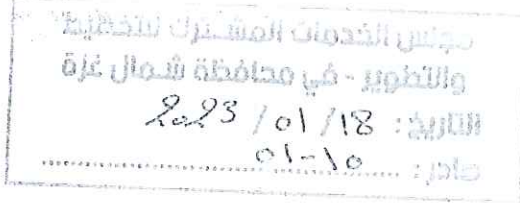 مجلس الخدمات المشترك للتخطيط
والتطوير - في محافظة شمال غزة
التاريخ : 2023 / 01 / 18
01-10